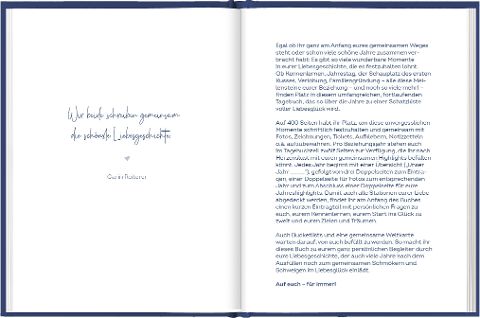 Wir beide schreiben gemeinsam
die schönste Liebesgeschichte
Egal ob ihr ganz am Anfang eures gemeinsamen Weges
steht oder schon viele schöne Jahre zusammen ver-
bracht habt: Es gibt so viele wunderbare Momente
in eurer Liebesgeschichte, die es festzuhalten lohnt.
Ob Kennenlernen, Jahrestag, der Schauplatz des ersten
Kusses, Verlobung, Familiengründung – alle diese Mei-
lensteine eurer Beziehung – und noch so viele mehr! –
finden Platz in diesem umfangreichen, fortlaufenden
Tagebuch, das so über die Jahre zu einer Schatzkiste
voller Liebesglück wird.
Auf 400 Seiten habt ihr Platz, um diese unvergesslichen
Momente schriftlich festzuhalten und gemeinsam mit
Fotos, Zeichnungen, Tickets, Aufklebern, Notizzetteln
o.ä. aufzubewahren. Pro Beziehungsjahr stehen euch
im Tagebuchstil zwölf Seiten zur Verfügung, die ihr nach
Herzenslust mit euren gemeinsamen Highlights befüllen
könnt. Jedes Jahr beginnt mit einer Übersicht („Unser
Jahr ..........“), gefolgt von drei Doppelseiten zum Eintra-
gen, einer Doppelseite für Fotos zum entsprechenden
Jahr und zum Abschluss einer Doppelseite für eure
Jahreshighlights. Damit auch alle Stationen eurer Liebe
abgedeckt werden, findet ihr am Anfang des Buches
einen kurzen Eintragteil mit persönlichen Fragen zu
euch, eurem Kennenlernen, eurem Start ins Glück zu
zweit und euren Zielen und Träumen.
Auch Bucketlists und eine gemeinsame Weltkarte
warten darauf, von euch befüllt zu werden. So macht ihr
dieses Buch zu eurem ganz persönlichen Begleiter durch
eure Liebesgeschichte, der auch viele Jahre nach dem
Ausfüllen noch zum gemeinsamen Schmökern und
Schwelgen im Liebesglück einlädt.
Auf euch – für immer!